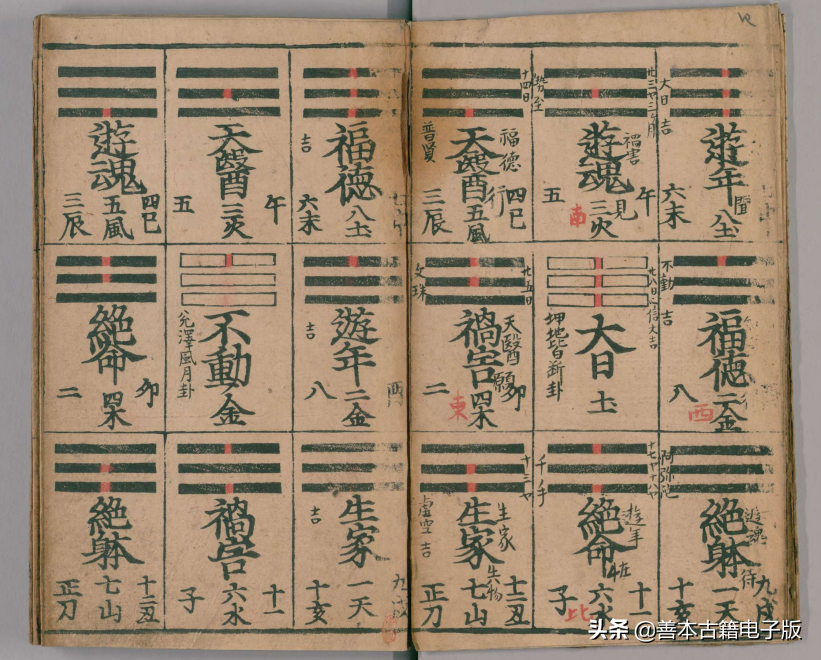 大日
吉
遊年
八土
六未
廿三ヤ
遊魂
禍害
三火
午
見
五
南
十四日
天醫
福德
行
五風
四巳
三辰
普賢
不動
吉
福德
二金
八
西
大日
土
坤地皆斷卦
廿五日
文珠
禍害
天醫
願
四木
卯
二
東
遊魂
絶躰
一天
九戌
十亥
十七ヤ十八ヤ
千手
絶命
遊年
六水
十一
子
北
十三ヤ
虛空
吉
生家
生家
七山
十二丑
正刀
福德
吉
八土
六未
天醫
三火
午
五
遊魂
五風
四巳
三辰
遊年
吉
二金
八
酉
不動
金
兊澤風月卦
絶命
四木
卯
二
生家
吉
一天
十亥
禍害
六水
十一
子
絶躰
七山
十二丑
正刀
头条 @善本古籍电子版